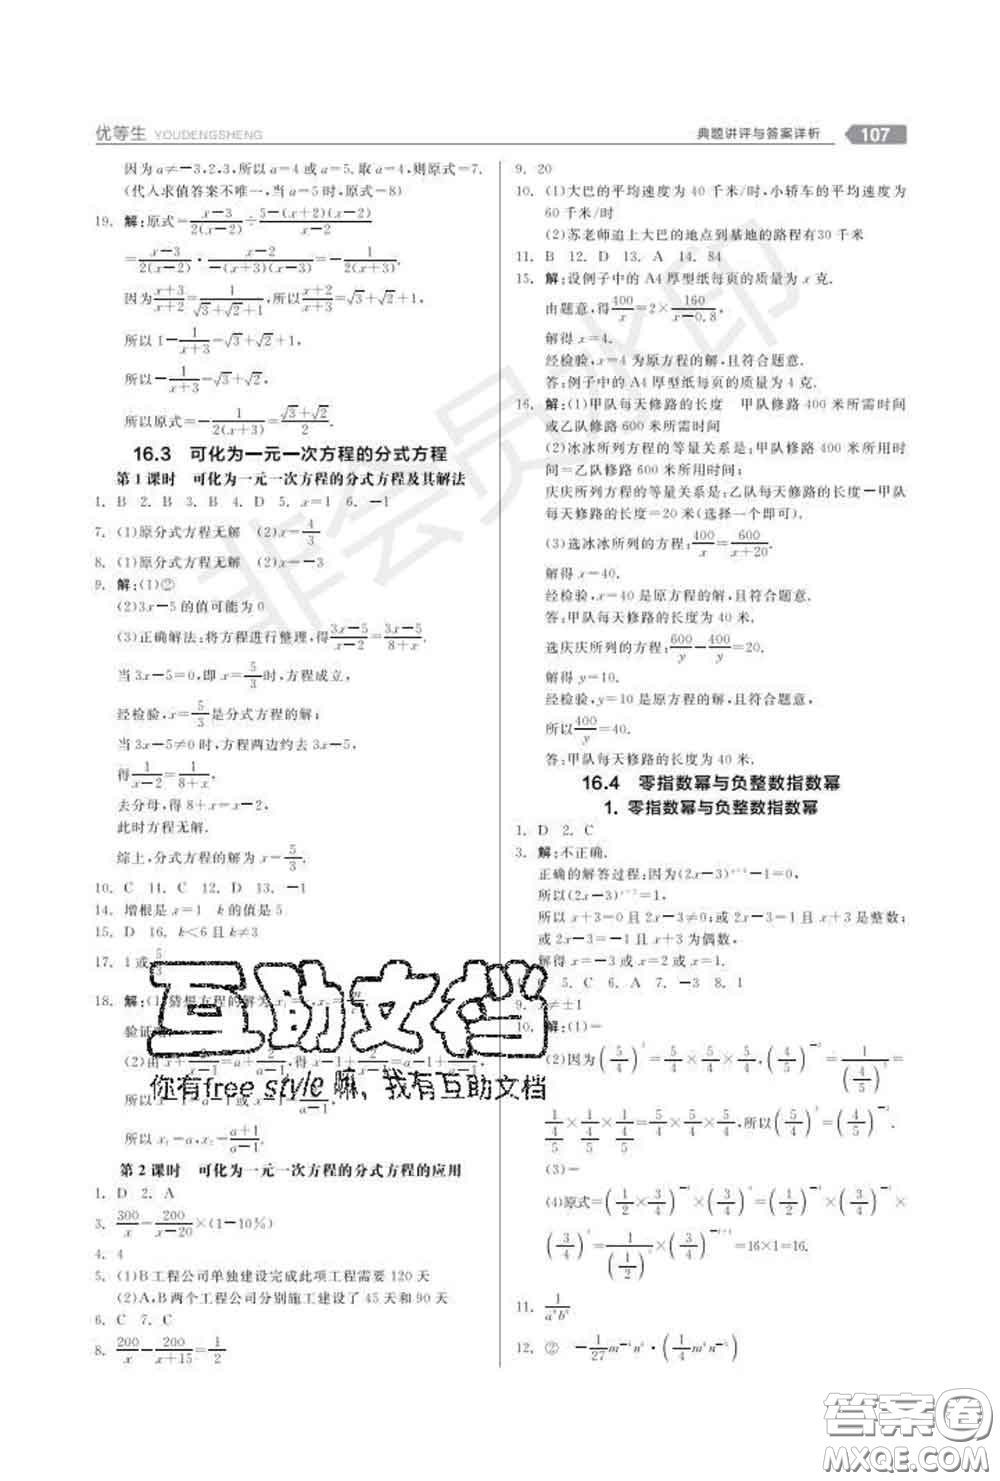 优等生 YOUDENGSHENG
典题讲评与答案详析 107
因为a≠-3,2,3,所以a=4或a=5.取a=4,则原式=7.
(代入求值答案不唯一,当a=5时,原式=8)
19. 解:原式=(x-3)/(2(x-2))÷(5-(x+2)(x-2))/(x-2)
=(x-3)/(2(x-2))·(x-2)/(-(x+3)(x-3))=-1/(2(x+3)).
因为(x+3)/(x+2)=1/(√3+√2+1),所以(x+2)/(x+3)=√3+√2+1,
所以1-1/(x+3)=√3+√2+1,
所以-1/(x+3)=√3+√2,
所以原式=-1/(2(x+3))=(√3+√2)/2.
16.3 可化为一元一次方程的分式方程
第1课时 可化为一元一次方程的分式方程及其解法
1. B 2. B 3. B 4. D 5. x=1 6. -1
7. (1)原分式方程无解 (2)x=4/3
8. (1)原分式方程无解 (2)x=-3
9. 解:(1)②
(2)3x-5的值可能为0
(3)正确解法:将方程进行整理,得(3x-5)/(x-2)=(3x-5)/(8+x).
当3x-5=0,即x=5/3时,方程成立,
经检验,x=5/3是分式方程的解;
当3x-5≠0时,方程两边约去3x-5,
得1/(x-2)=1/(8+x),
去分母,得8+x=x-2,
此时方程无解.
综上,分式方程的解为x=5/3.
10. C 11. C 12. D 13. -1
14. 增根是x=1 k的值是5
15. D 16. k<6且k≠3
17. 1或5/3
18. 解:(1)猜想方程的解为
验证
(2)由
所以x-1=a-1或x-1=1/(a-1),
所以x₁=a,x₂=(a+1)/(a-1).
第2课时 可化为一元一次方程的分式方程的应用
1. D 2. A
3. 300/x=200/(x-20)×(1-10%)
4. 4
5. (1)B工程公司单独建设完成此项工程需要120天
(2)A,B两个工程公司分别施工建设了45天和90天
6. C 7. C
8. 200/x-200/(x+15)=1/2
9. 20
10. (1)大巴的平均速度为40千米/时,小轿车的平均速度为
60千米/时
(2)苏老师追上大巴的地点到基地的路程有30千米
11. B 12. D 13. A 14. 84
15. 解:设例子中的A4厚型纸每页的质量为x克.
由题意,得400/x=2×160/(x-0.8),
解得x=4.
经检验,x=4为原方程的解,且符合题意.
答:例子中的A4厚型纸每页的质量为4克.
16. 解:(1)甲队每天修路的长度 甲队修路400米所需时间
或乙队修路600米所需时间
(2)冰冰所列方程的等量关系是:甲队修路400米所用时
间=乙队修路600米所用时间;
庆庆所列方程的等量关系是:乙队每天修路的长度-甲队
每天修路的长度=20米(选择一个即可).
(3)选冰冰所列的方程:400/x=600/(x+20).
解得x=40.
经检验,x=40是原方程的解,且符合题意.
答:甲队每天修路的长度为40米.
选庆庆所列的方程:600/y-400/y=20.
解得y=10.
经检验,y=10是原方程的解,且符合题意.
所以400/y=40.
答:甲队每天修路的长度为40米.
16.4 零指数幂与负整数指数幂
1. 零指数幂与负整数指数幂
1. D 2. C
3. 解:不正确.
正确的解答过程:因为(2x-3)ˣ⁺³-1=0,
所以(2x-3)ˣ⁺³=1,
所以x+3=0且2x-3≠0;或2x-3=1且x+3是整数;
或2x-3=-1且x+3为偶数,
解得x=-3或x=2或x=1.
5. C 6. A 7. -3 8. 1
9. x≠±1
10. 解:(1)=
(3)=
11. 
12. ②
非会员水印
互助文档
你有free style嘛、我有互助文档
答案圈
MXQE.COM